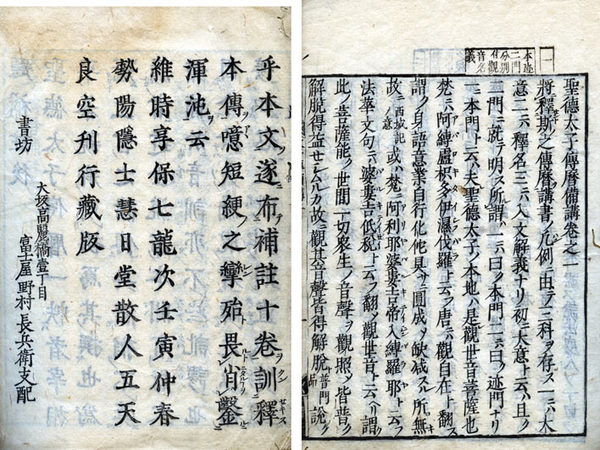 一
本迹二門分別付觀音名義
聖德太子傳曆備講卷之一
將釋斯之傳曆講書ノ凡例ニ由テ三科ヲ存ス一ニハ大
意二ニハ釋名三ニハ入文解義ナリ初ニ大意ト云ハ且ク
二門ニ就テ明ス所謂一ニ曰ク本門二ニ曰ク迹門ナリ
一ニ本門ト云ハ夫聖德太子ノ本地ハ是觀世音菩薩也
梵ニハ阿縛盧枳多伊濕伐羅ト云フ唐ニハ觀自在ト翻ス
謂ク身語意業自行化他見ナ圓成メ缺減スル所無キ
故ニ西域記或ハ梵ニ阿利耶婆婁吉帝入縛羅耶ト云フ
法華文句ニハ婆婁吉低稅ト云フ翻メ觀世音ト云ヘリ謂ク
此ノ菩薩能ク世間一切衆生ノ音聲ヲ觀照メ皆普ク
解脫ヲ得益セシムルカ故ニ觀其音聲皆得解脫普門品ト說ク
乎本文遂布補註十卷訓釋
本傳噫短綆之攣殆畏肖鑿
渾沌云
維時享保七龍次壬寅仲春
勢陽隱士慧日堂散人五天
良空刊行藏版
書坊
大坂高麗橋壹丁目
富士屋野村長兵衛支配